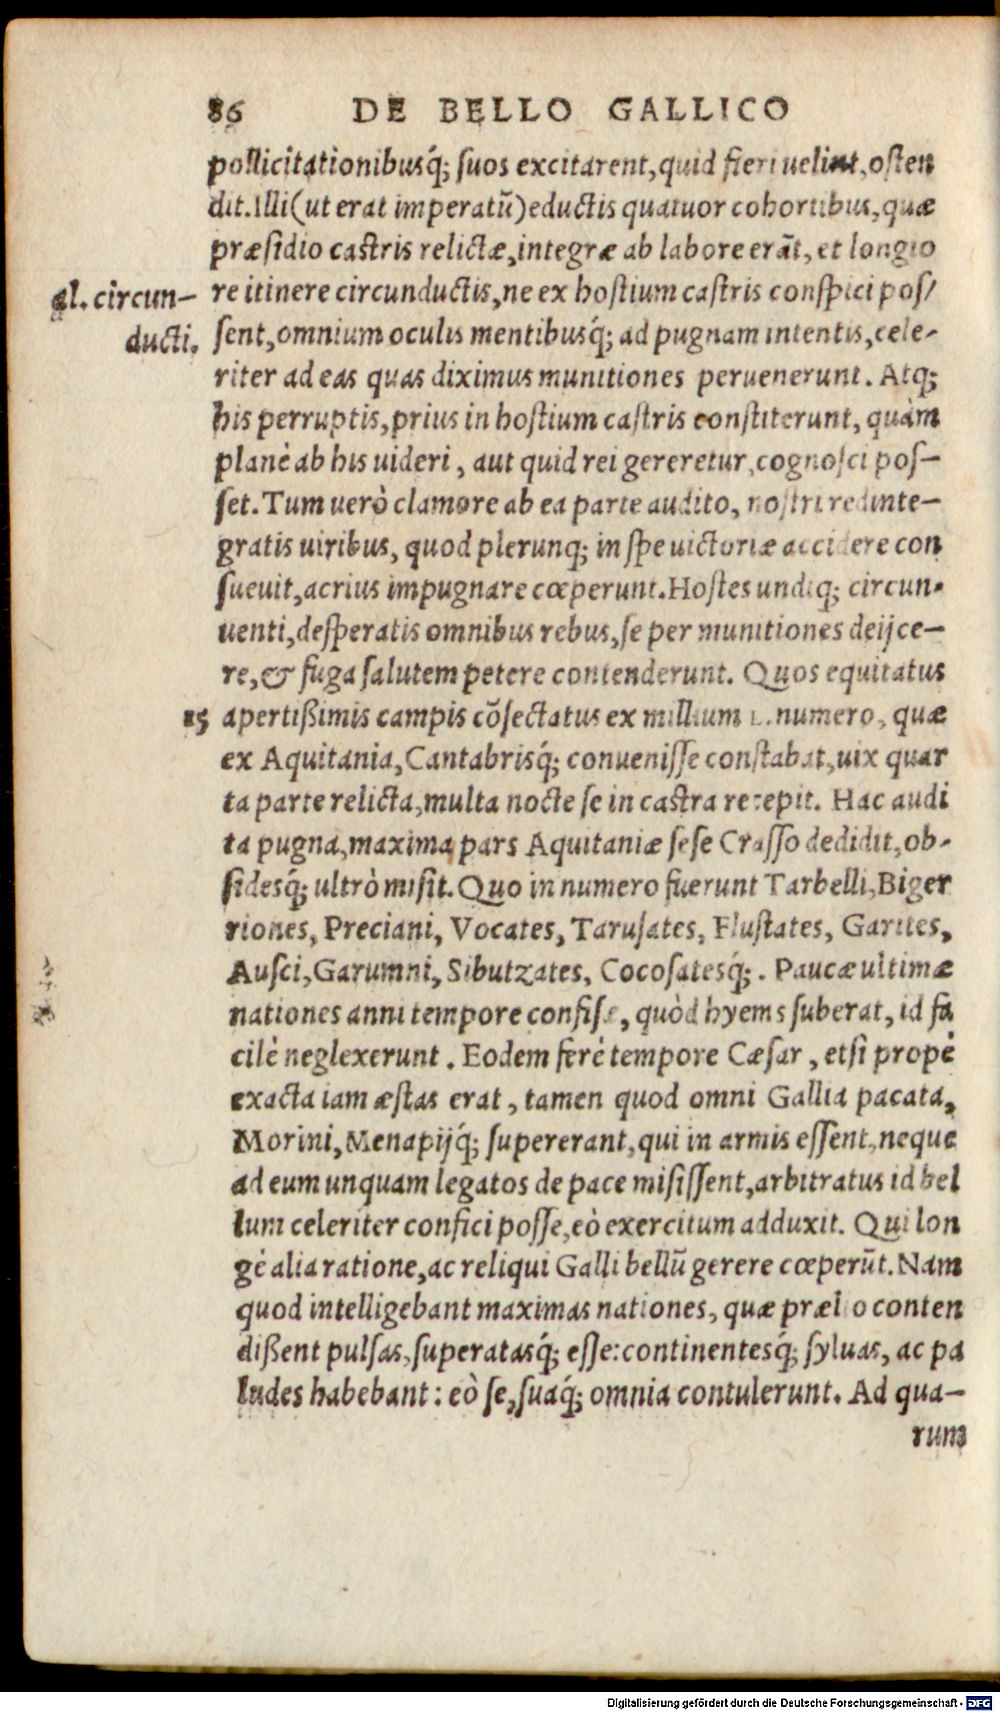 86 DE BELLO GALLICO
pollicitationibusq́; suos excitarent, quid fieri uelint, osten
dit. Illi (ut erat imperatū) eductis quatuor cohortibus, quæ
præsidio castris relictæ, integræ ab labore erāt, et longio
al. circun-
re itinere circunductis, ne ex hostium castris conspici pos/
ducti.
sent, omnium oculis mentibusq́; ad pugnam intentis, cele-
riter ad eas quas diximus munitiones peruenerunt. Atq;
his perruptis, prius in hostium castris constiterunt, quàm
planè ab his uideri, aut quid rei gereretur, cognosci pos-
set. Tum uerò clamore ab ea parte audito, nostri redinte-
gratis uiribus, quod plerunq; in spe uictoriæ accidere con
sueuit, acrius impugnare cœperunt. Hostes undiq; circun-
uenti, desperatis omnibus rebus, se per munitiones deijce-
re, & fuga salutem petere contenderunt. Quos equitatus
15 apertißimis campis cōsectatus ex millium L. numero, quæ
ex Aquitania, Cantabrisq́; conuenisse constabat, uix quar
ta parte relicta, multa nocte se in castra recepit. Hac audi
ta pugna, maxima pars Aquitaniæ sese Crasso dedidit, ob-
sidesq́; ultrò misit. Quo in numero fuerunt Tarbelli, Biger
riones, Preciani, Vocates, Tarusates, Flustates, Garites,
Ausci, Garumni, Sibutzates, Cocosatesq́;. Paucæ ultimæ
nationes anni tempore confisæ, quòd hyems suberat, id fa
cilè neglexerunt. Eodem ferè tempore Cæsar, etsi propè
exacta iam æstas erat, tamen quod omni Gallia pacata,
Morini, Menapijq́; supererant, qui in armis essent, neque
ad eum unquam legatos de pace misissent, arbitratus id bel
lum celeriter confici posse, eò exercitum adduxit. Qui lon
gè alia ratione, ac reliqui Galli bellū gerere cœperūt. Nam
quod intelligebant maximas nationes, quæ prælio conten
dißent pulsas, superatasq́; esse: continentesq́; syluas, ac pa
ludes habebant: eò se, suaq́; omnia contulerunt. Ad qua-
rum
Digitalisierung gefördert durch die Deutsche Forschungsgemeinschaft - DFG